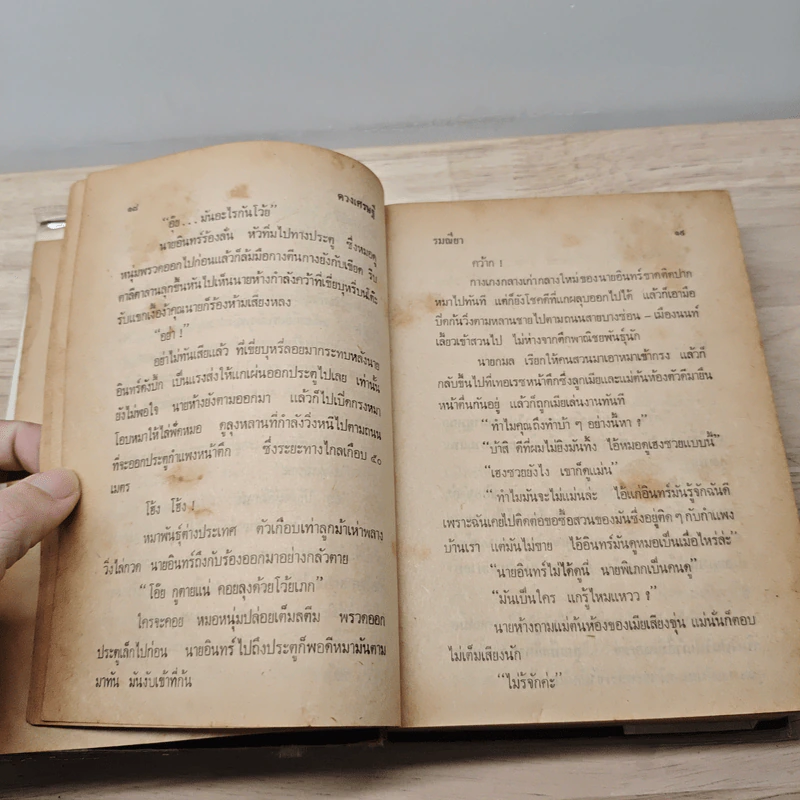 ๑๘ ดวงเศรษฐี
"อุ้ย...มันอะไรกันโว้ย"
นายอินทร์ร้องลั่น หัวทิ่มไปทางประตู ซึ่งหมอดู
หนุ่มพรวดออกไปก่อนแล้วก็ล้มมือกางตีนกางยังกับเขียด รีบ
ตาลีตาลานลุกขึ้นหันไปเห็นนายห้างกำลังคว้าที่เขี่ยบุหรี่บนโต๊ะ
รับแขกเงื้อง้าคุณนายก็ร้องห้ามเสียงหลง
"อย่า !"
อย่าไม่ทันเสียแล้ว ที่เขี่ยบุหรี่ลอยมากระทบหลังนาย
อินทร์ดังปั้ก เป็นแรงส่งให้แกเผ่นออกประตูไปเลย เท่านั้น
ยังไม่พอใจ นายห้างยังตามออกมา แล้วก็ไปเปิดกรงหมา
โอบหมาให้ไล่ฟัดหมอ ดูลุงหลานที่กำลังวิ่งหนีไปตามถนน
ที่จะออกประตูกำแพงหน้าตึก ซึ่งระยะทางไกลเกือบ ๕๐
เมตร
โฮ้ง โฮ้ง !
หมาพันธุ์ต่างประเทศ ตัวเกือบเท่าลูกม้าเห่าพลาง
วิ่งไล่กวด นายอินทร์ถึงกับร้องออกมาอย่างกลัวตาย
"โอ๊ย กูตายแน่ คอยลุงด้วยโว้ยเภก"
ใครจะคอย หมอหนุ่มปล่อยเต็มสตีม พรวดออก
ประตูเล็กไปก่อน นายอินทร์ไปถึงประตูก็พอดีหมามันตาม
มาทัน มันงับเข้าที่ก้น
รมณียา ๑๙
คว้าก !
กางเกงกลางเก่ากลางใหม่ของนายอินทร์ขาดติดปาก
หมาไปทันที แต่ก็ยังโชคดีที่แกผลุบออกไปได้ แล้วก็เอามือ
ปิดก้นวิ่งตามหลานชายไปตามถนนสายบางซ่อน – เมืองนนท์
เลี้ยวเข้าสวนไป ไม่ห่างจากตึกพาณิชยพันธุ์นัก
นายกมล เรียกให้คนสวนมาเอาหมาเข้ากรง แล้วก็
กลับขึ้นไปที่เทอเรซหน้าตึกซึ่งลูกเมียและแม่ต้นห้องตัวดีมายืน
หน้าตื่นกันอยู่ แล้วก็ถูกเมียเล่นงานทันที
"ทำไมคุณถึงทำบ้า ๆ อย่างนี้หา ?"
"บ้าสิ ดีที่ผมไม่ยิงมันทิ้ง ไอ้หมอดูเฮงซวยแบบนี้"
"เฮงซวยยังไง เขาก็ดูแม่น"
"ทำไมมันจะไม่แม่นล่ะ ไอ้แก่อินทร์มันรู้จักฉันดี
เพราะฉันเคยไปติดต่อขอซื้อสวนของมันซึ่งอยู่ติด ๆ กับกำแพง
บ้านเรา แต่มันไม่ขาย ไอ้อินทร์มันดูหมอเป็นเมื่อไหร่ล่ะ"
"นายอินทร์ไม่ได้ดูนี่ นายพิเภกเป็นคนดู"
"มันเป็นใคร แกรู้ไหมแหวว ?"
นายห้างถามแม่ต้นห้องของเมียเสียงขุ่น แม่นั่นก็ตอบ
ไม่เต็มเสียงนัก
"ไม่รู้จักค่ะ"